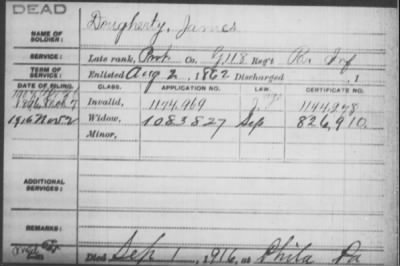 DEAD
NAME OF SOLDIER: Dougherty, James
SERVICE: Late rank, Co. G, 118 Reg't Pa. Inf
TERM OF SERVICE: Enlisted Aug 2, 1862 Discharged , 1
DATE OF FILING. CLASS. APPLICATION NO. LAW. CERTIFICATE NO.
Invalid, 1174.969
1916 Nov 2 Widow, 1083827 Sep 826,910.
Minor,
ADDITIONAL SERVICES:
REMARKS:
Died Sep 1, 1916, at Phila Pa